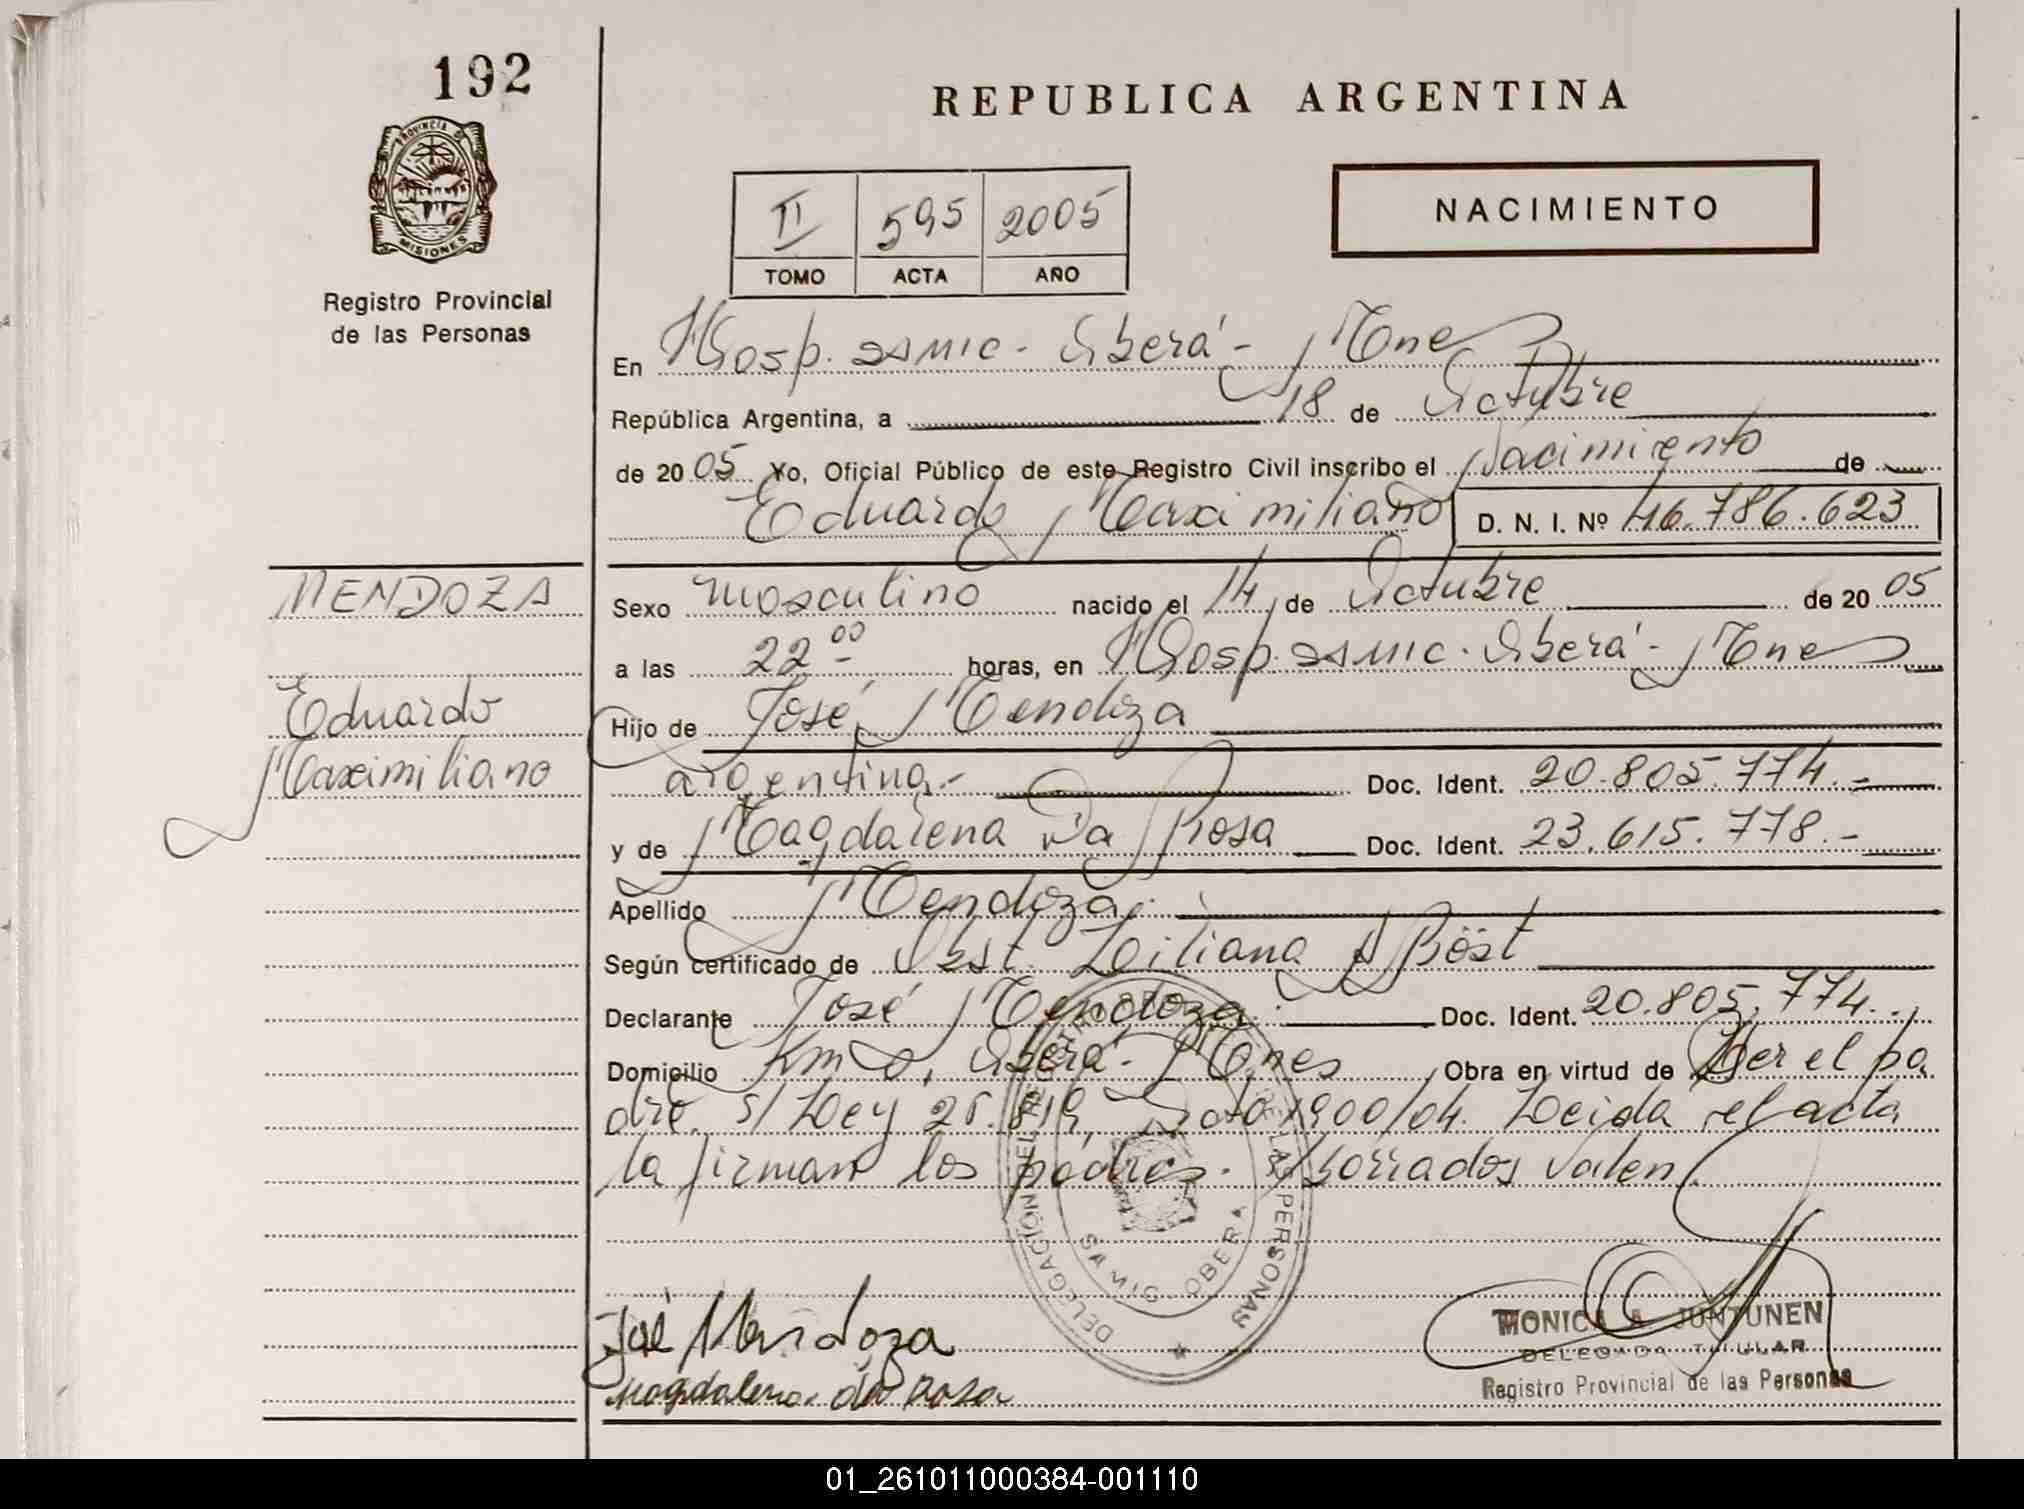 192
REPUBLICA ARGENTINA
PROVINCIA DE
MISIONES
Registro Provincial
de las Personas
NACIMIENTO
II 595 2005
TOMO ACTA AÑO
En Hosp. SAMIC - Oberá - Mnes
República Argentina, a 18 de Octubre
de 2005 Yo, Oficial Público de este Registro Civil inscribo el Nacimiento de
Eduardo Maximiliano D. N. I. Nº 46.786.623
MENDOZA
Sexo masculino nacido el 14 de Octubre de 2005
a las 22 00 horas, en Hosp. SAMIC - Oberá - Mnes
Eduardo
Hijo de José Mendoza
Maximiliano
argentina.- Doc. Ident. 20.805.774.-
y de Magdalena Da Rosa Doc. Ident. 23.615.778.-
Apellido Mendoza.
Según certificado de Obst. Liliana Böst
Declarante José Mendoza. Doc. Ident. 20.805.774.
Domicilio Km 0, Oberá - Mnes Obra en virtud de Ser el pa
dre. s/ Ley 25.819, Dcto 1900/04. Leida el acta
la firman los padres. Borrados valen
DELEGACIÓN DEL REGISTRO DE LAS PERSONAS
SAMIC - OBERA
José Mendoza
Magdalena da Rosa
MONICA A. JUNTUNEN
DELEGADA TITULAR
Registro Provincial de las Personas
01_261011000384-001110